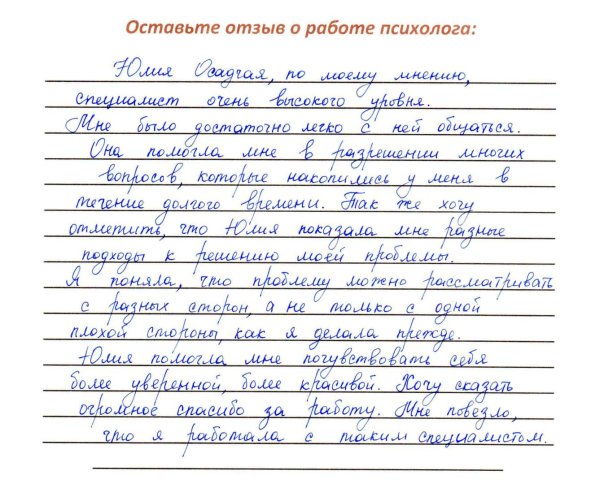 Оставьте отзыв о работе психолога:
Юлия Осадчая, по моему мнению,
специалист очень высокого уровня.
Мне было достаточно легко с ней общаться.
Она помогла мне в разрешении многих
вопросов, которые накопились у меня в
течение долгого времени. Так же хочу
отметить, что Юлия показала мне разные
подходы к решению моей проблемы.
Я поняла, что проблему можно рассматривать
с разных сторон, а не только с одной
плохой стороны, как я делала прежде.
Юлия помогла мне почувствовать себя
более уверенной, более красивой. Хочу сказать
огромное спасибо за работу. Мне повезло,
что я работала с таким специалистом.